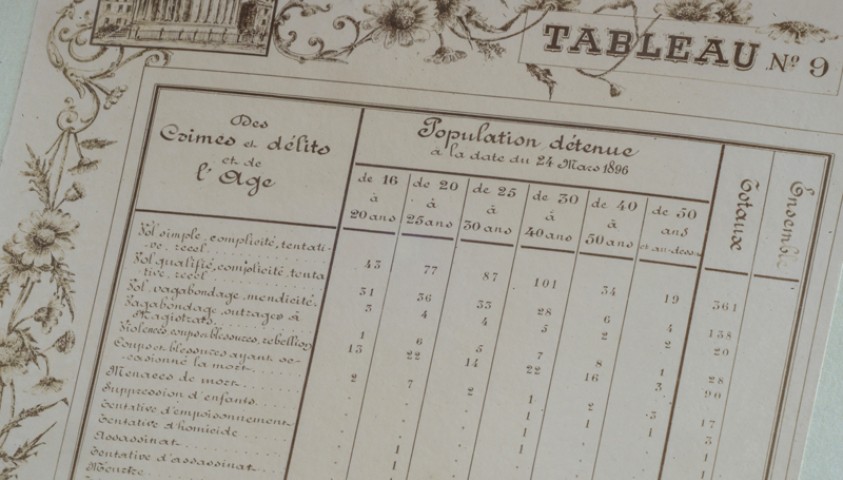 TABLEAU Nº 9
Des
Crimes et délits
et de
l'Age
Population détenue
a la date du 24 Mars 1896
de 16 à 20 ans
de 20 à 25 ans
de 25 à 30 ans
de 30 à 40 ans
de 40 à 50 ans
de 50 ans et au-dess
Totaux
Ensemble
Vol simple, complicité, tentati-
ve, recel 43 77 87 101 34 19 361
Vol qualifié, complicité, tenta
tive, recel 31 36 33 28 6 4 138
Vol, vagabondage, mendicité 3 4 4 5 2 2 20
Vagabondage, outrages à
Magistrats 1 6 5 7 8 1 28
Violences, coups & blessures, rebellion 13 22 14 22 16 3 90
Coups et blessures ayant oc-
casionné la mort 2 7 2 1 2 3 17
Menaces de mort
Suppression d'enfants
Tentative d'empoisonnement
Tentative d'homicide
Assassinat
Tentative d'assassinat
Meurtre